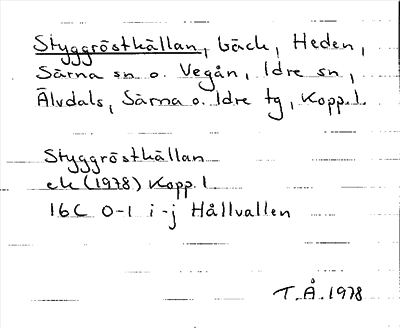 Styggröstkällan, bäck, Heden,
Särna sn o. Vegån, Idre sn,
Älvdals, Särna o. Idre tg, Kopp. l.
Styggröstkällan
ek (1978) Kopp. l
16C 0-1 i-j Hållvallen
T.Å. 1978